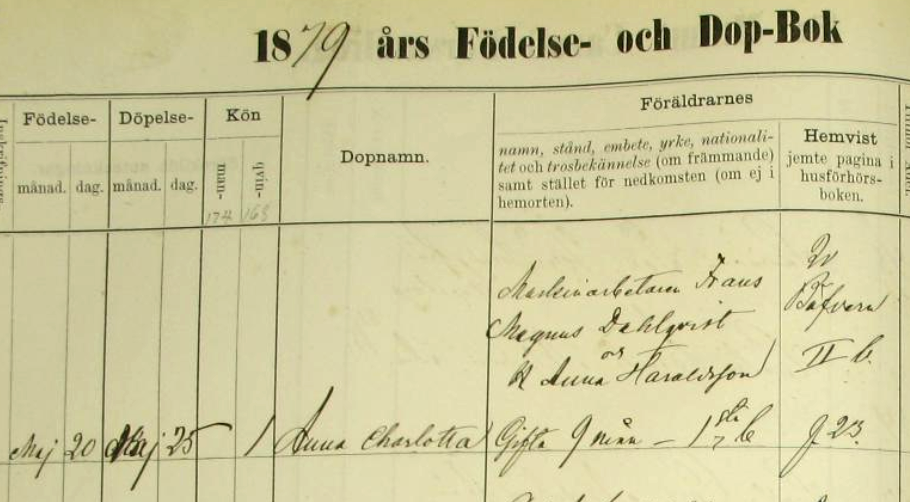 1879 års Födelse- och Dop-Bok
Födelse- Döpelse- Kön Dopnamn. Föräldrarnes
månad. dag. månad. dag. man- qvin-
174 168
namn, stånd, embete, yrke, nationali-
tet och trosbekännelse (om främmande)
samt stället för nedkomsten (om ej i
hemorten).
Hemvist
jemte pagina i
husförhörs-
boken.
Maskinarbetaren Frans
Magnus Dahlqvist
och
H Anna Haraldsson
Bäfvern
II b.
Maj 20 Maj 25 1 Anna Charlotta Gifta 9 mån – 1sta b p 23.